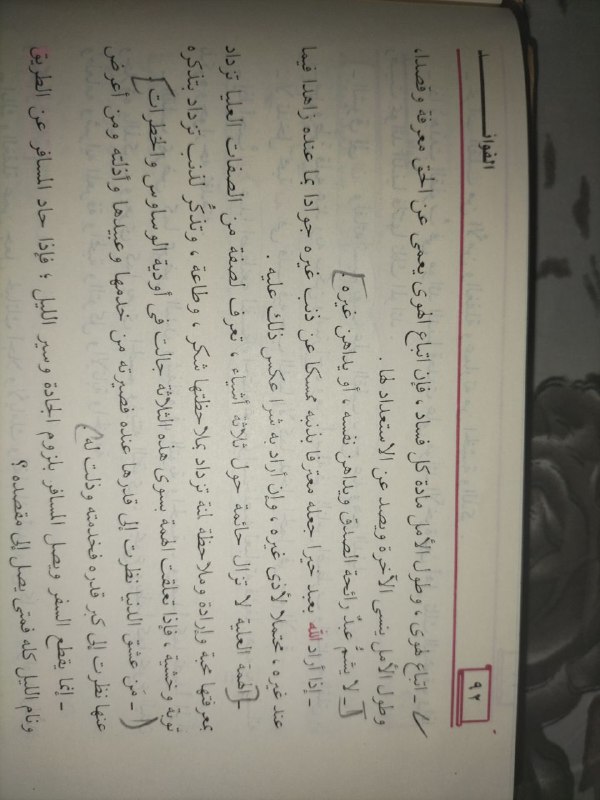 ٩٢
الفوائــــــد
ـ اتباع الهوى، وطول الأمل مادة كل فساد، فإن اتباع الهوى يعمى عن الحق معرفة وقصدا،
وطول الأمل ينسى الآخرة ويصد عن الاستعداد لها.
ـ لا يشمُّ عبدٌ رائحة الصدق ويداهن نفسه، أو يداهن غيره
ـ إذا أراد الله بعبد خيرا جعله معترفا بذنبه ممسكا عن ذنب غيره جوادا بما عنده زاهدا فيما
عند غيره، محتملا لأذى غيره، وإن أراد به شرا عكس ذلك عليه.
ـ الهمة العلية لا تزال حائمة حول ثلاثة أشياء، تعرف لصفة من الصفات العليا تزداد
بمعرفتها محبة وإرادة وملاحظة لمنة تزداد بملاحظتها شكر، وطاعة، وتذكُّر لذنب تزداد بتذكره
توبة وخشية، فإذا تعلقت الهمة بسوى هذه الثلاثة جالت فى أودية الوساوس والخطرات
ـ مَن عشق الدنيا نظرت إلى قدرها عنده فصيرته من خدمها وعبيدها وأذلته ومن أعرض
عنها نظرت إلى كبر قدره فخدمته وذلت له
ـ إنما يقطع السفر ويصل المسافر بلزوم الجادة وسير الليل؛ فإذا حاد المسافر عن الطريق
ونام الليل كله فمتى يصل إلى مقصده؟